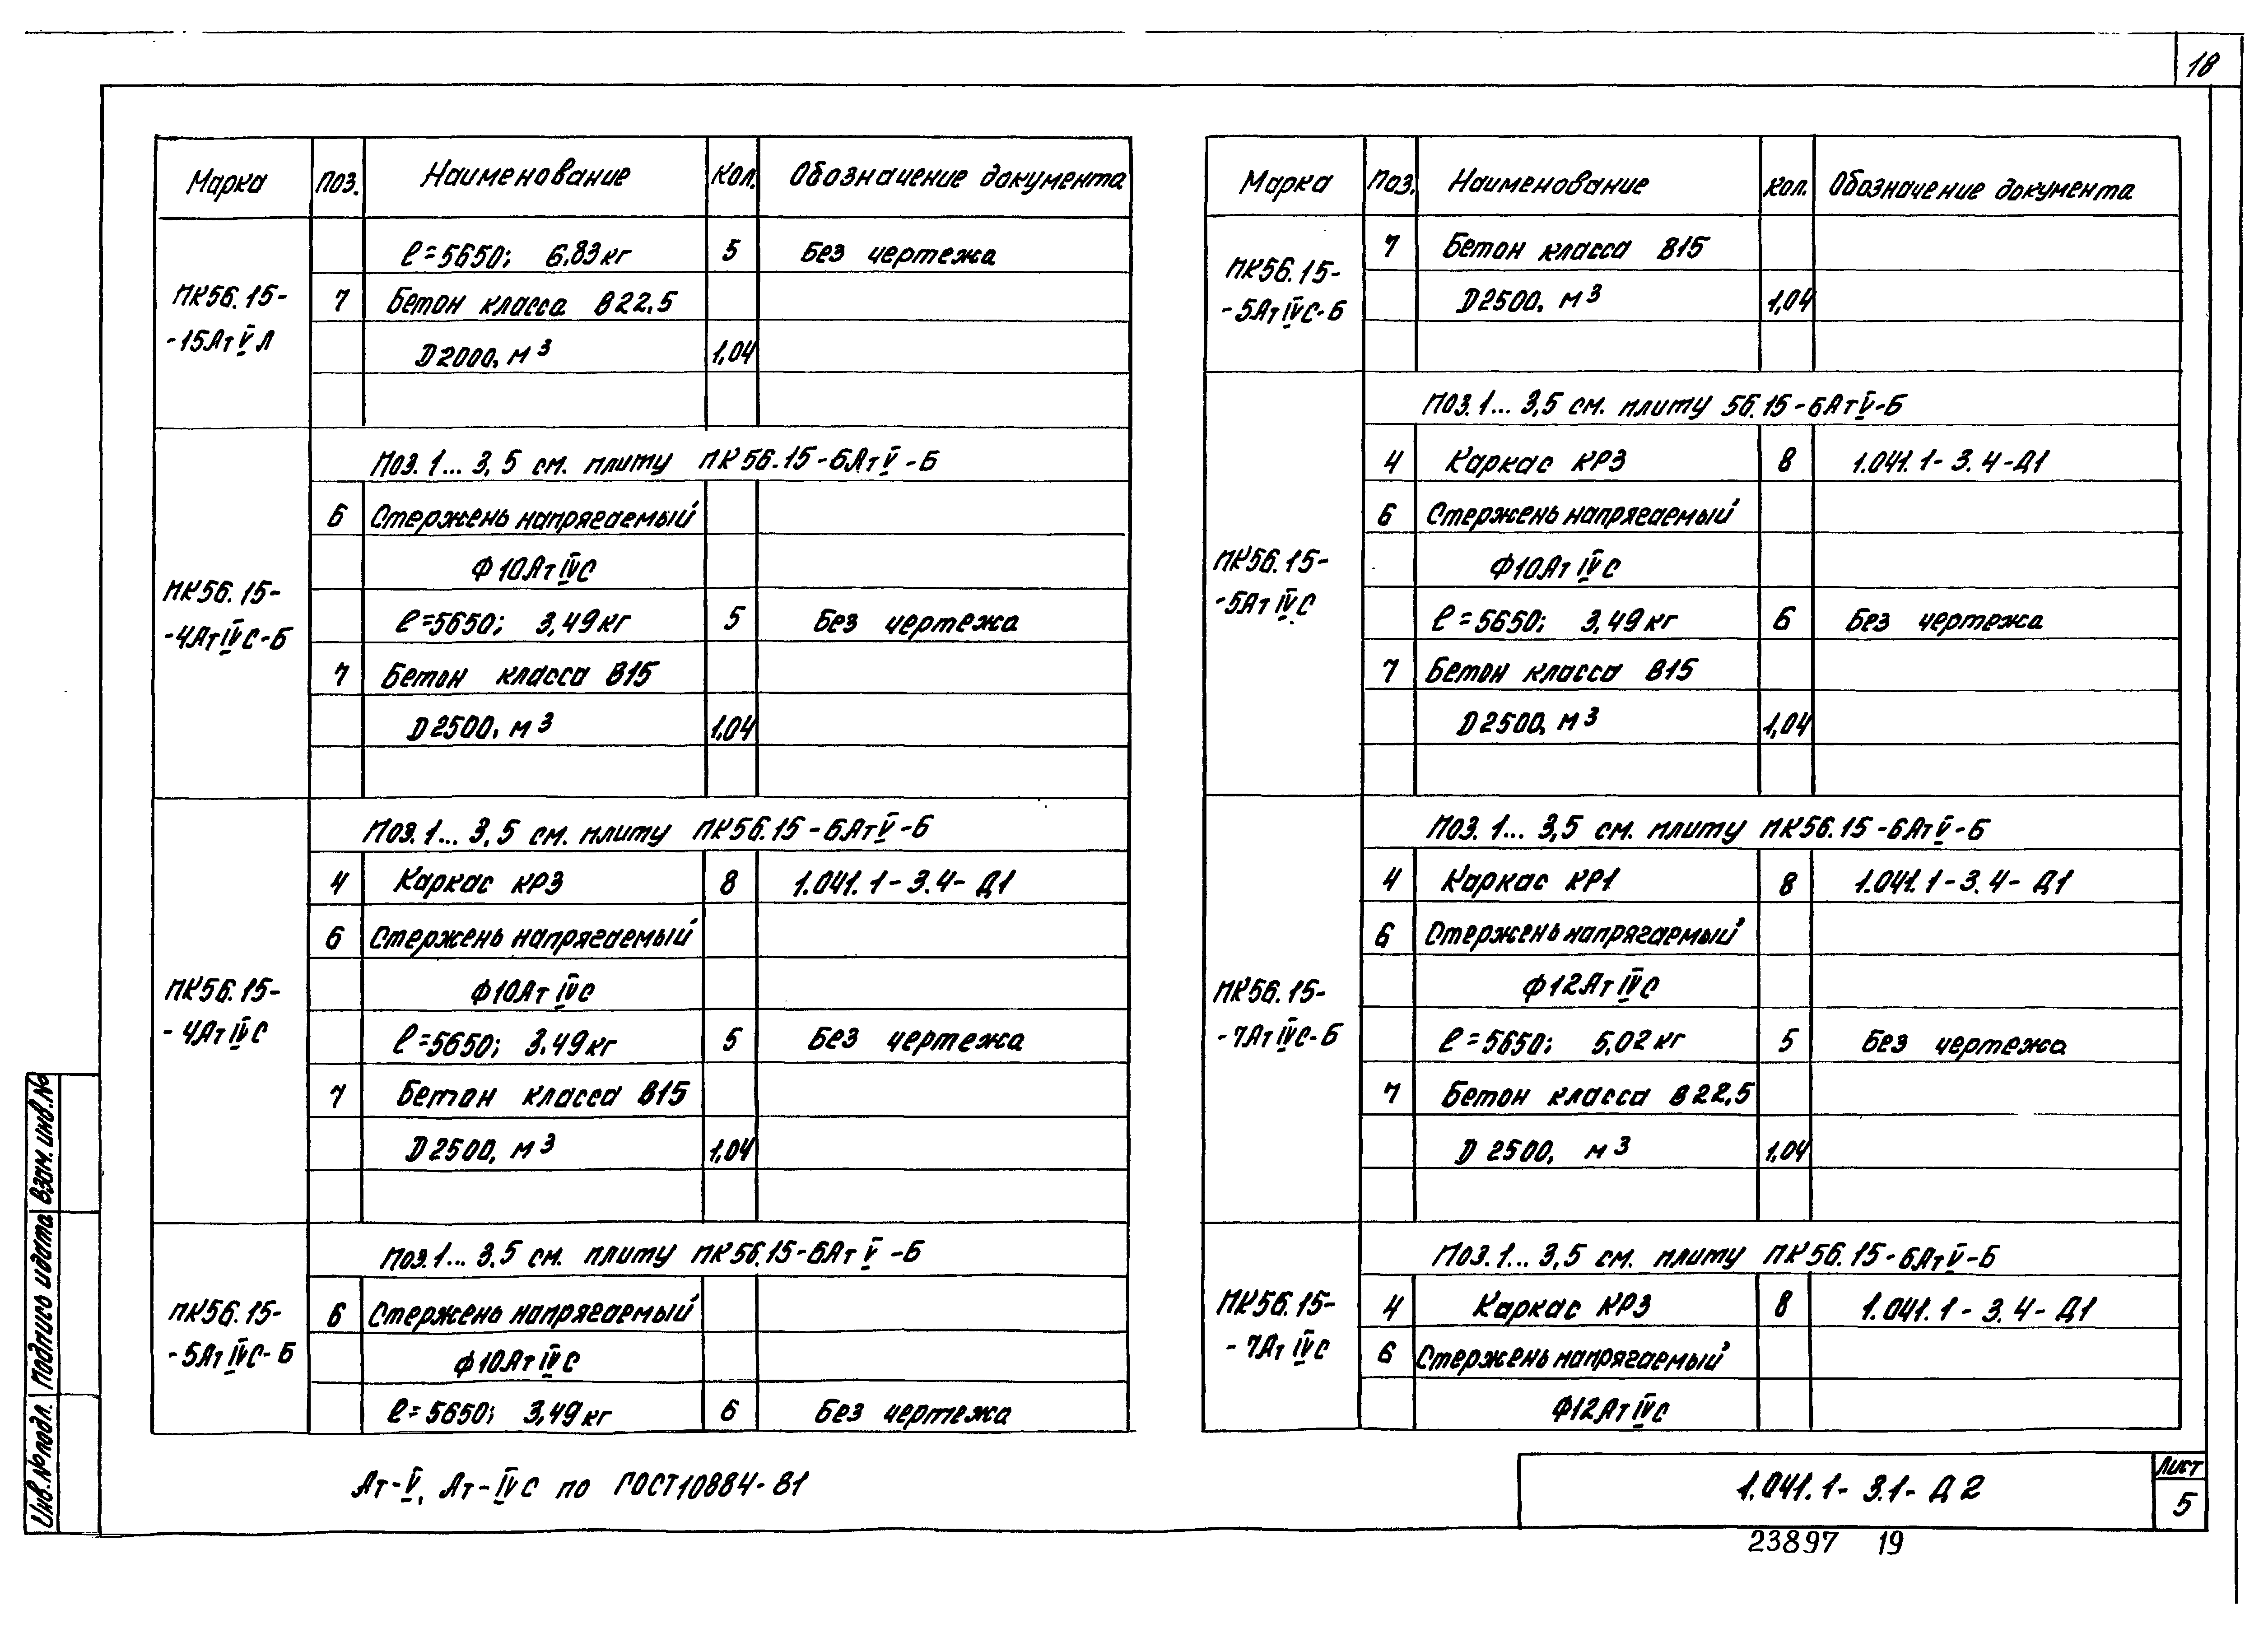 18
Марка Поз. Наименование Кол. Обозначение документа
ПК56.15-
-15АтVЛ
ℓ=5650; 6.83кг 5 Без чертежа
7 Бетон класса В22,5
D2000, м3 1,04
ПК56.15-
-4АтIVС-Б
Поз. 1... 3,5 см. плиту ПК56.15-6АтV-Б
6 Стержень напрягаемый
Ф10АтIVС
ℓ=5650; 3,49кг 5 Без чертежа
7 Бетон класса В15
D2500, м3 1,04
ПК56.15-
-4АтIVС
Поз. 1... 3,5 см. плиту ПК56.15-6АтV-Б
4 Каркас КР3 8 1.041.1-3.4-Д1
6 Стержень напрягаемый
Ф10АтIVС
ℓ=5650; 3.49кг 5 Без чертежа
7 Бетон класса В15
D2500, м3 1,04
ПК56.15-
-5АтIVС-Б
Поз.1... 3.5 см. плиту ПК56.15-6АтV-Б
6 Стержень напрягаемый
Ф10АтIVС
ℓ=5650; 3,49кг 6 Без чертежа
Марка Поз. Наименование Кол. Обозначение документа
ПК56.15-
-5АтIVС-Б
7 Бетон класса В15
D2500, м3 1,04
ПК56.15-
-5АтIVС
Поз.1... 3,5 см. плиту 56.15-6АтV-Б
4 Каркас КР3 8 1.041.1-3.4-Д1
6 Стержень напрягаемый
Ф10АтIVС
ℓ=5650; 3,49кг 6 Без чертежа
7 Бетон класса В15
D2500, м3 1,04
ПК56.15-
-7АтIVС-Б
Поз. 1... 3,5 см. плиту ПК56.15-6АтV-Б
4 Каркас КР1 8 1.041.1-3.4-Д1
6 Стержень напрягаемый
Ф12АтIVС
ℓ=5650; 5,02кг 5 Без чертежа
7 Бетон класса В22,5
D 2500, м3 1,04
ПК56.15-
-7АтIVС
Поз.1... 3,5 см. плиту ПК56.15-6АтV-Б
4 Каркас КР3 8 1.041.1-3.4-Д1
6 Стержень напрягаемый
Ф12АтIVС
Ат-V, Ат-IVС по ГОСТ10884-81
1.041.1-3.1-Д2
Лист
5
23897 19
Инв.№подл. Подпись и дата Взам. инв.№